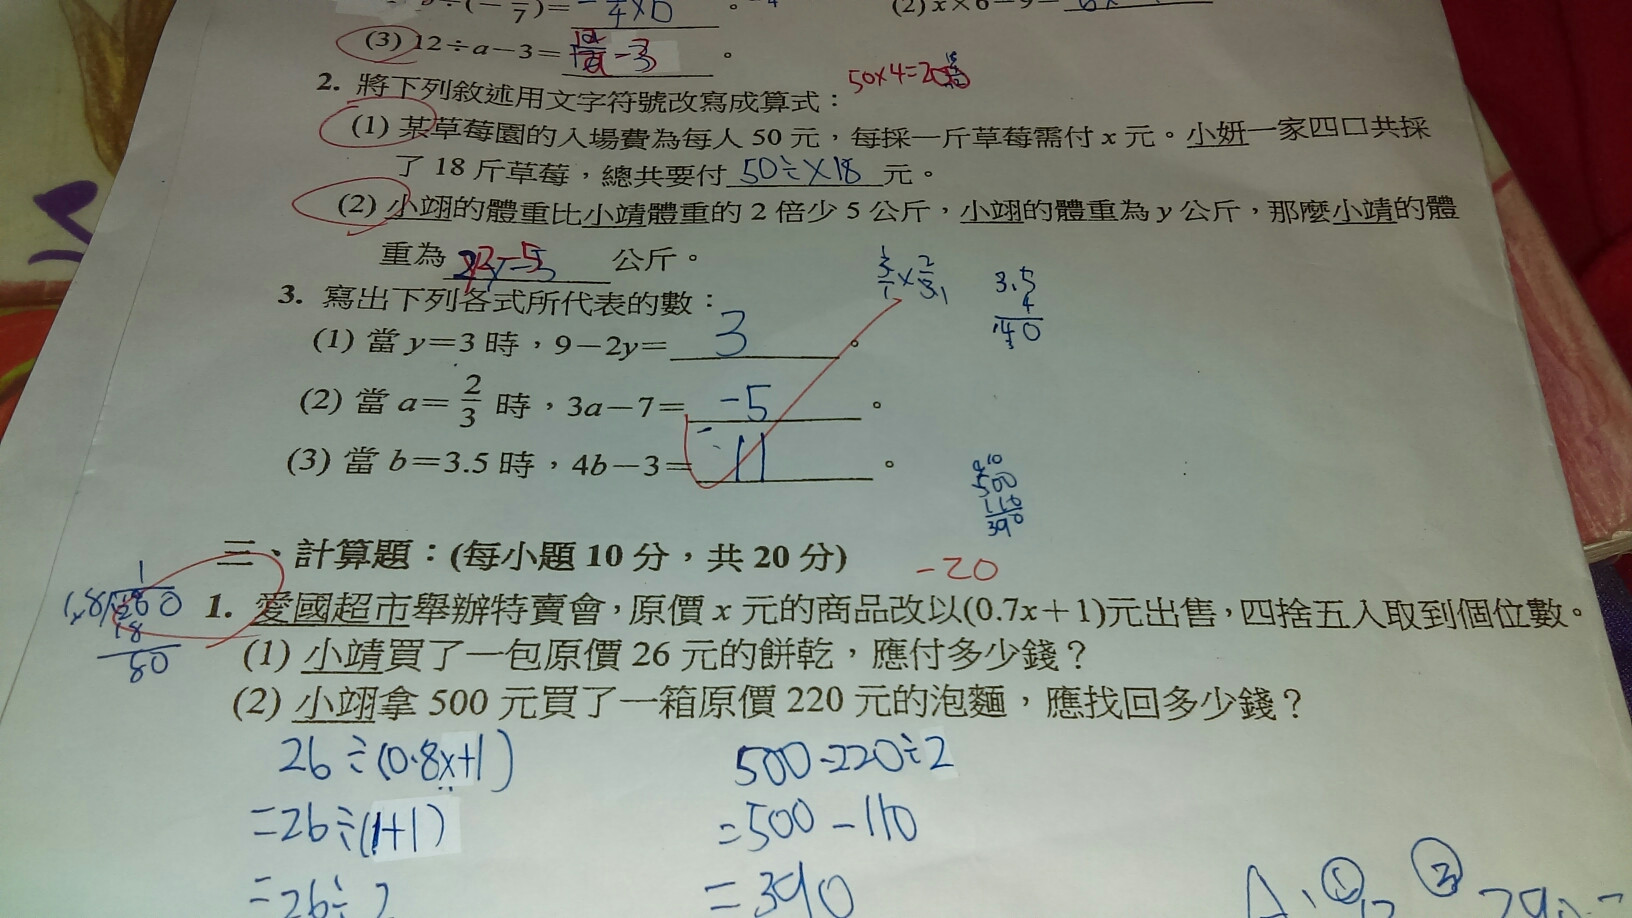 (3) 12÷a-3= 12/a -3 。
50×4=200
2. 將下列敘述用文字符號改寫成算式：
(1) 某草莓園的入場費為每人 50 元，每採一斤草莓需付 x 元。小妍一家四口共採
了 18 斤草莓，總共要付 50÷×18 元。
(2) 小翊的體重比小靖體重的 2 倍少 5 公斤，小翊的體重為 y 公斤，那麼小靖的體
重為 公斤。
3. 寫出下列各式所代表的數：
(1) 當 y=3 時，9-2y= 3 。
3.5
4
140
(2) 當 a= 2/3 時，3a-7= -5 。
(3) 當 b=3.5 時，4b-3= 11 。
390
三、計算題：(每小題 10 分，共 20 分) -20
1. 愛國超市舉辦特賣會，原價 x 元的商品改以(0.7x+1)元出售，四捨五入取到個位數。
(1) 小靖買了一包原價 26 元的餅乾，應付多少錢？
(2) 小翊拿 500 元買了一箱原價 220 元的泡麵，應找回多少錢？
26÷(0.8x+1) 500-220÷2
=26÷(1+1) =500-110
=26÷2 =390